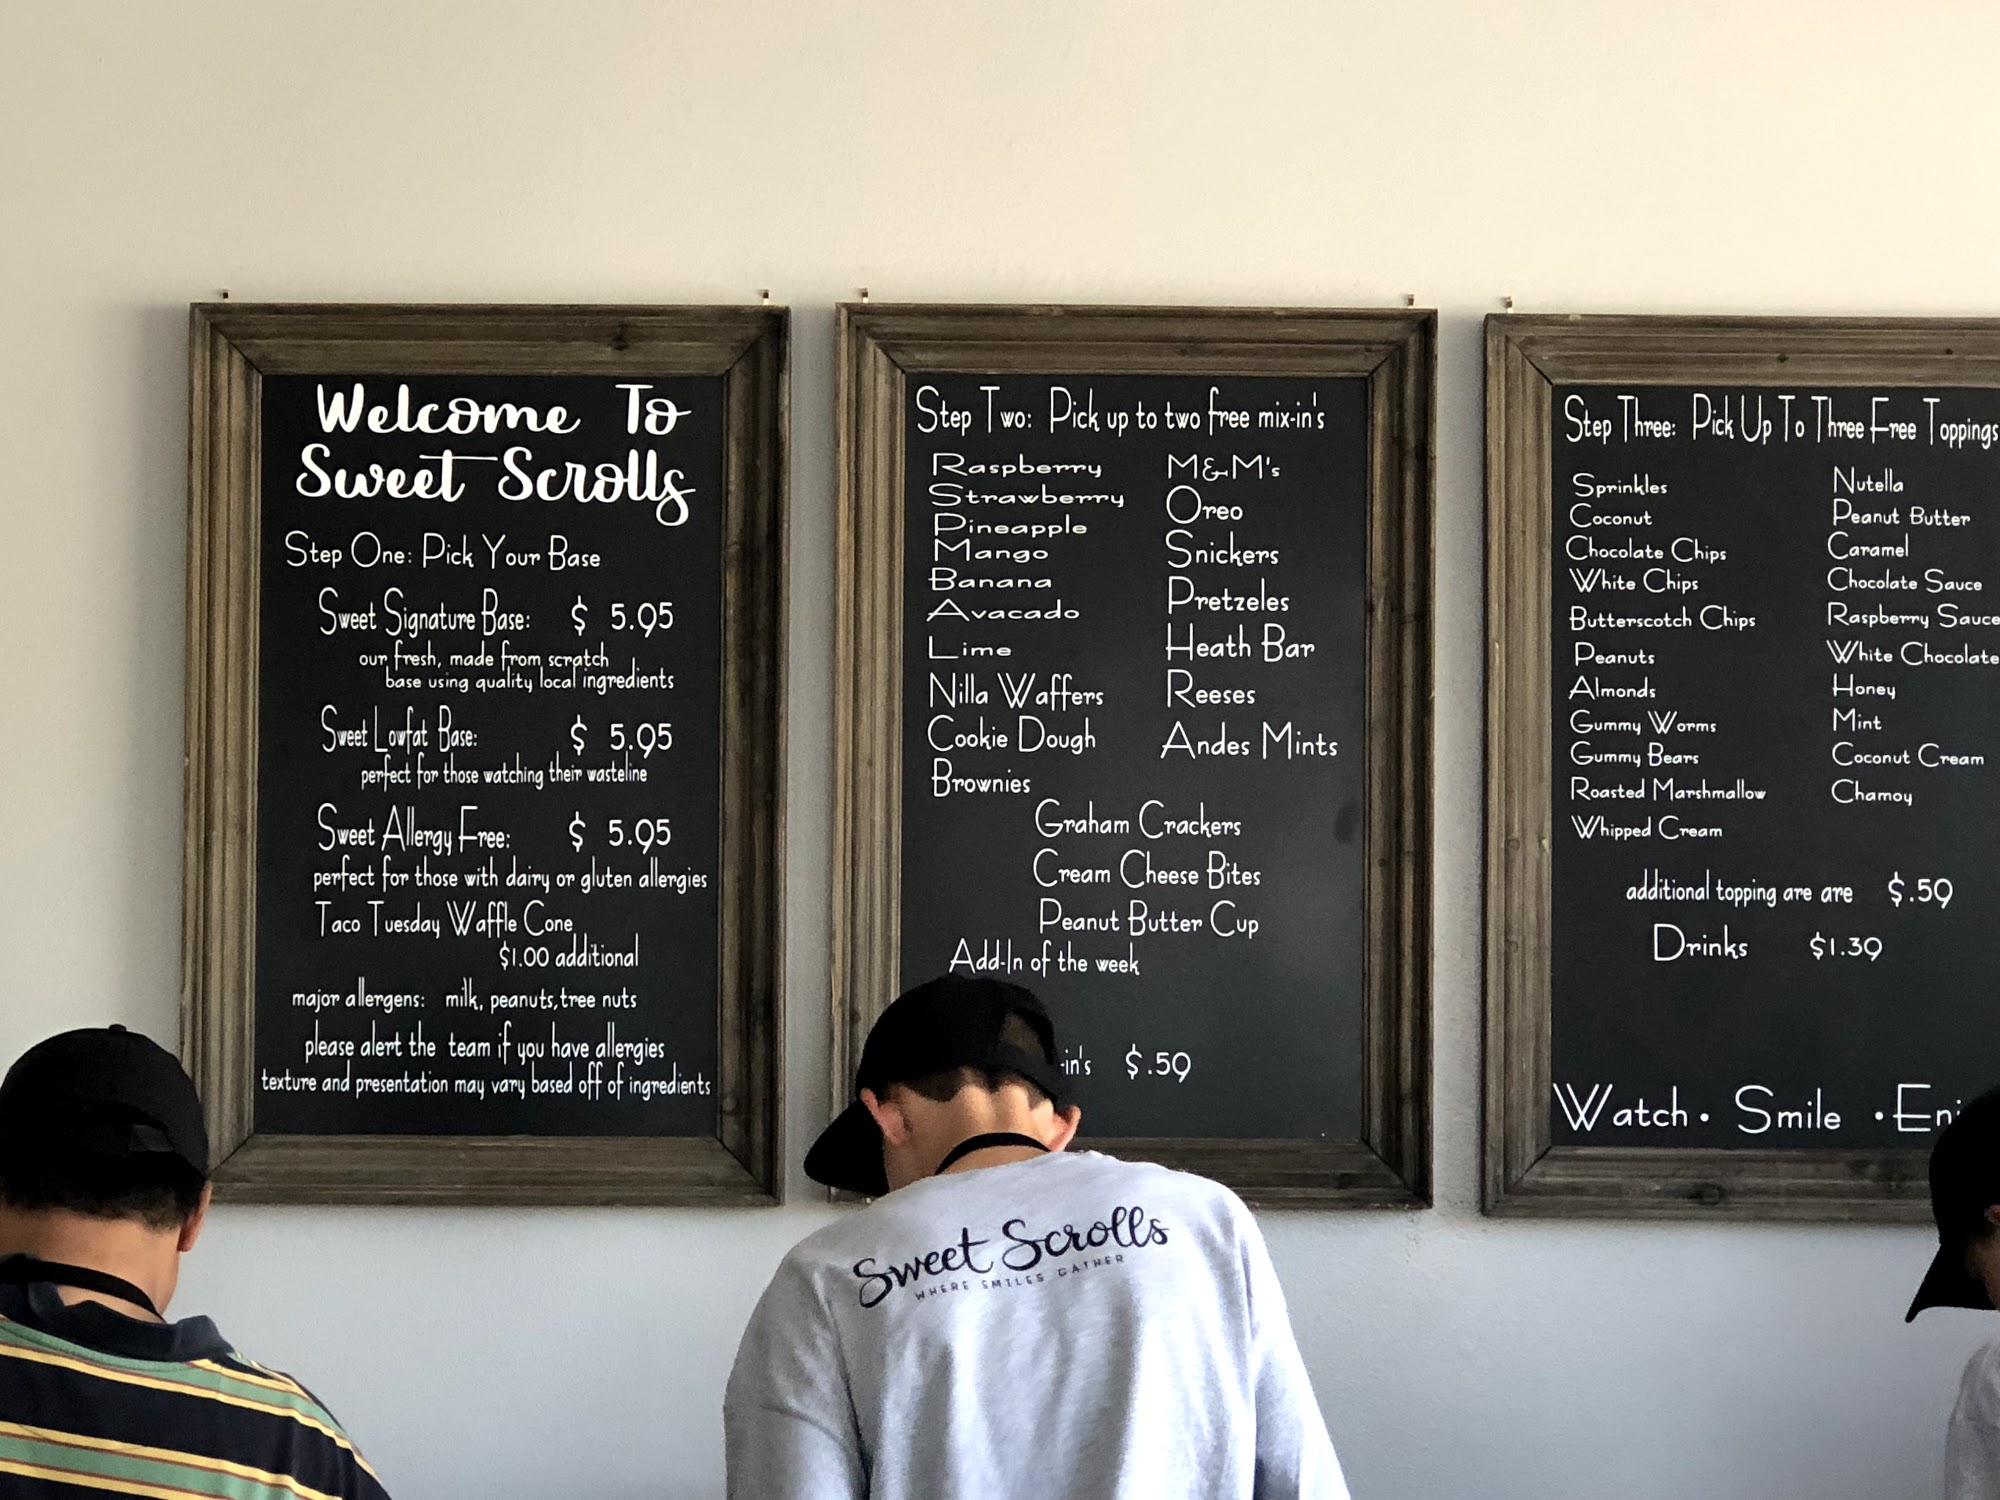 Welcome To
Sweet Scrolls
Step One: Pick Your Base
Sweet Signature Base: $ 5.95
our fresh, made from scratch
base using quality local ingredients
Sweet Lowfat Base: $ 5.95
perfect for those watching their wasteline
Sweet Allergy Free: $ 5.95
perfect for those with dairy or gluten allergies
Taco Tuesday Waffle Cone
$1.00 additional
major allergens: milk, peanuts, tree nuts
please alert the team if you have allergies
texture and presentation may vary based off of ingredients
Step Two: Pick up to two free mix-in's
Raspberry
Strawberry
Pineapple
Mango
Banana
Avacado
Lime
Nilla Waffers
Cookie Dough
Brownies
M&M's
Oreo
Snickers
Pretzeles
Heath Bar
Reeses
Andes Mints
Graham Crackers
Cream Cheese Bites
Peanut Butter Cup
Add-In of the week
-in's $.59
Step Three: Pick Up To Three Free Toppings
Sprinkles
Coconut
Chocolate Chips
White Chips
Butterscotch Chips
Peanuts
Almonds
Gummy Worms
Gummy Bears
Roasted Marshmallow
Whipped Cream
Nutella
Peanut Butter
Caramel
Chocolate Sauce
Raspberry Sauce
White Chocolate
Honey
Mint
Coconut Cream
Chamoy
additional topping are are $.59
Drinks $1.39
Watch • Smile • Enj
Sweet Scrolls
WHERE SMILES GATHER